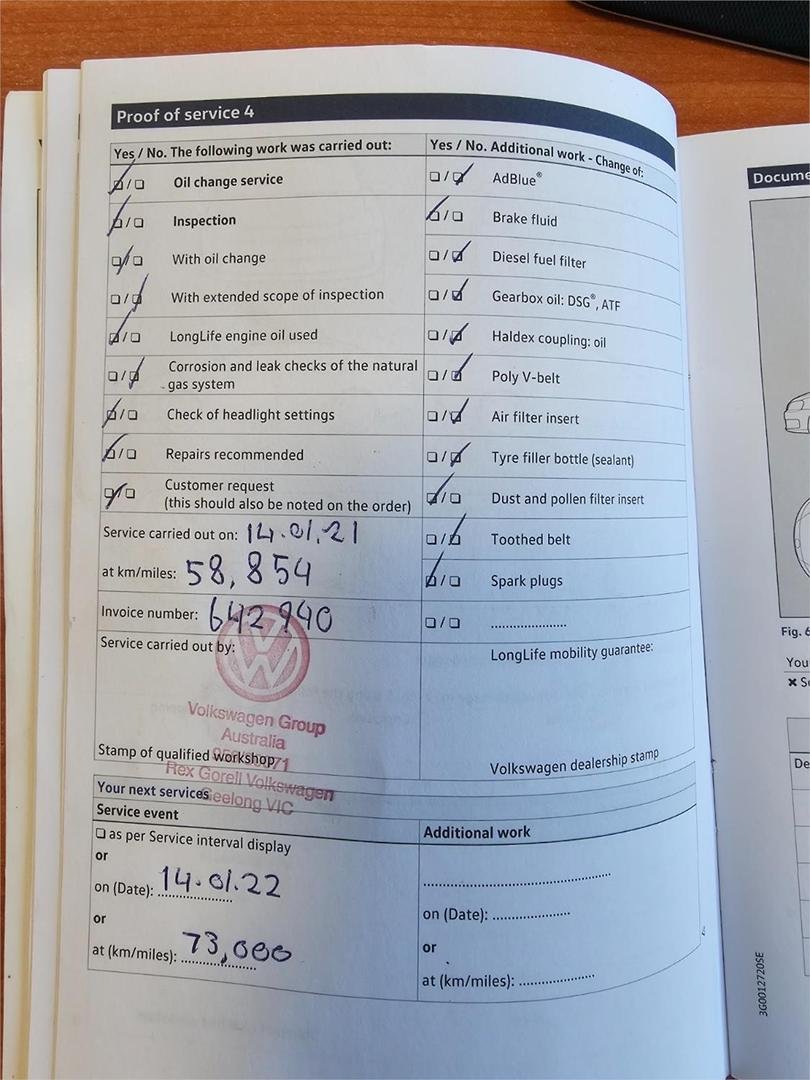 Proof of service 4
Yes / No. The following work was carried out:
☑/☐ Oil change service
☑/☐ Inspection
☐/☐ With oil change
☐/☑ With extended scope of inspection
☑/☐ LongLife engine oil used
☐/☑ Corrosion and leak checks of the natural
gas system
☑/☐ Check of headlight settings
☑/☐ Repairs recommended
☑/☐ Customer request
(this should also be noted on the order)
Service carried out on: 14.01.21
at km/miles: 58,854
Invoice number: 642940
Service carried out by:
Volkswagen Group
Australia
Stamp of qualified workshop
Rex Gorell Volkswagen
Geelong VIC
Yes / No. Additional work - Change of:
☐/☑ AdBlue®
☑/☐ Brake fluid
☐/☑ Diesel fuel filter
☐/☑ Gearbox oil: DSG®, ATF
☐/☑ Haldex coupling: oil
☐/☑ Poly V-belt
☐/☑ Air filter insert
☐/☑ Tyre filler bottle (sealant)
☑/☐ Dust and pollen filter insert
☐/☑ Toothed belt
☑/☐ Spark plugs
☐/☐ ......................
LongLife mobility guarantee:
Volkswagen dealership stamp
Your next services
Service event
☐ as per Service interval display
or
on (Date): 14.01.22
or
at (km/miles): 73,000
Additional work
on (Date): ......................
or
at (km/miles): ......................
3G0012720SE
Docume
Fig. 6
You